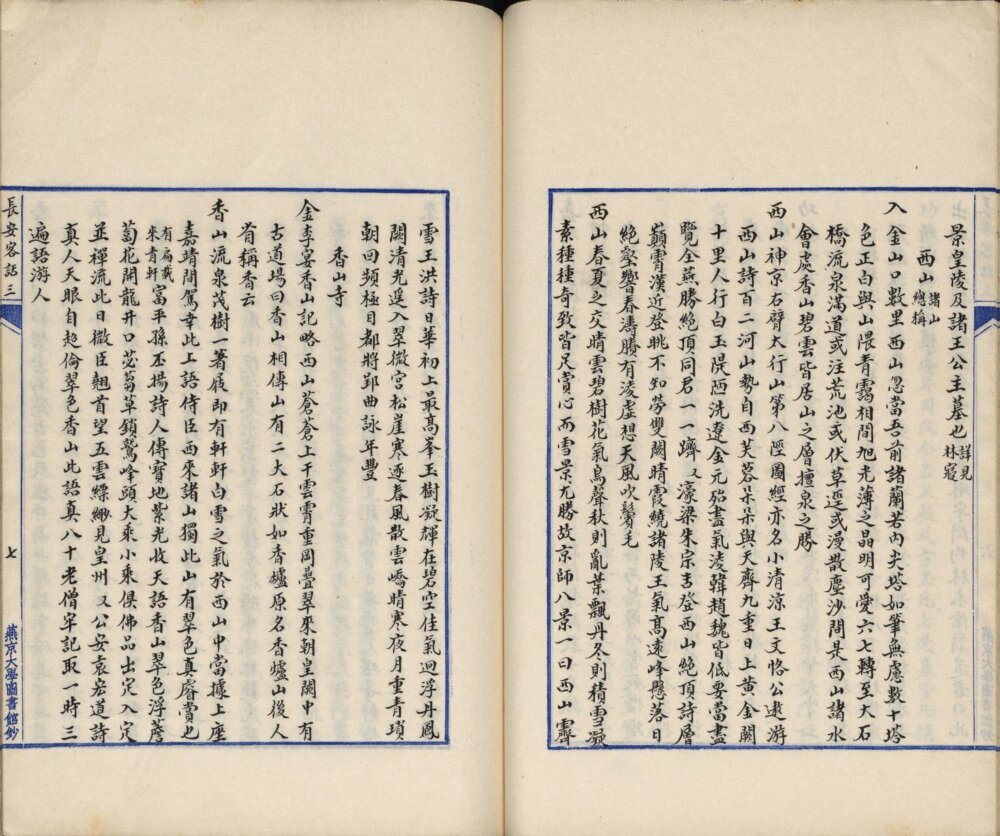 景皇陵及諸王公主墓也詳見林寢
西山諸山總稱
入金山口數里西山忽當吾前諸蘭若內夫塔如筆無慮數十塔
色正白與山隈青靄相間旭光薄之晶明可愛六七轉至大石
橋流泉滿道或注荒池或伏草逕或漫散塵沙間是西山諸水
會處香山碧雲皆居山之層擅泉之勝
西山神京右臂太行山第八陘圖經亦名小清涼王文恪公遨游
西山詩百二河山勢自西芙蓉朵朵與天齊九重日上黃金闕
十里人行白玉隄陋洗遼金元殆盡氣淩韓趙魏皆低要當盡
覽全燕勝絕頂同君一一躋又濠梁朱宗吉登西山絕頂詩層
巔霄漢近登眺不知勞雙闕晴霞繞諸陵王氣高遠峰懸落日
絕壑響春濤勝有淩虛想天風吹鬢毛
西山春夏之交晴雲碧樹花氣鳥聲秋則亂葉飄丹冬則積雪凝
素種種奇致皆足賞心而雪景尤勝故京師八景一曰西山霽
雪王洪詩日華初上最高峯玉樹凝輝在碧空佳氣迴浮丹鳳
闕清光遥入翠微宮松崖寒逐春風散雲嶠晴寒夜月重青瑣
朝回頻極目都將郢曲詠年豐
香山寺
金李宴香山記略西山蒼蒼上干雲霄重岡疊翠來朝皇闕中有
古道場曰香山相傳山有二大石狀如香爐原名香爐山後人
省稱香云
香山流泉茂樹一著屐即有軒軒白雪之氣於西山中當據上座
嘉靖間駕幸此上語侍臣西來諸山獨此山有翠色真睿賞也
有扁載來青軒富平孫丕揚詩人傳寶地紫光收天語香山翠色浮薝
蔔花開龍井口苾蒭草鎖鷲峰頭大乘小乘俱佛品出定入定
並禪流此日微臣翹首望五雲縹緲見皇州又公安袁宏道詩
真人天眼自超倫翠色香山此語真八十老僧牢記取一時三
遍語游人
長安客話三
七
燕京大學圖書館鈔